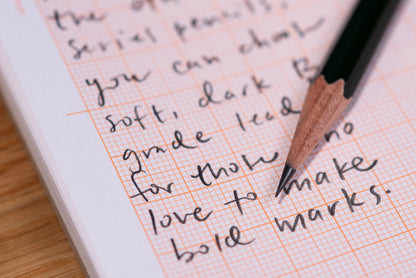 the o
serial pencils,
you can choose
soft, dark B
grade lead
for those who
love to make
bold marks.